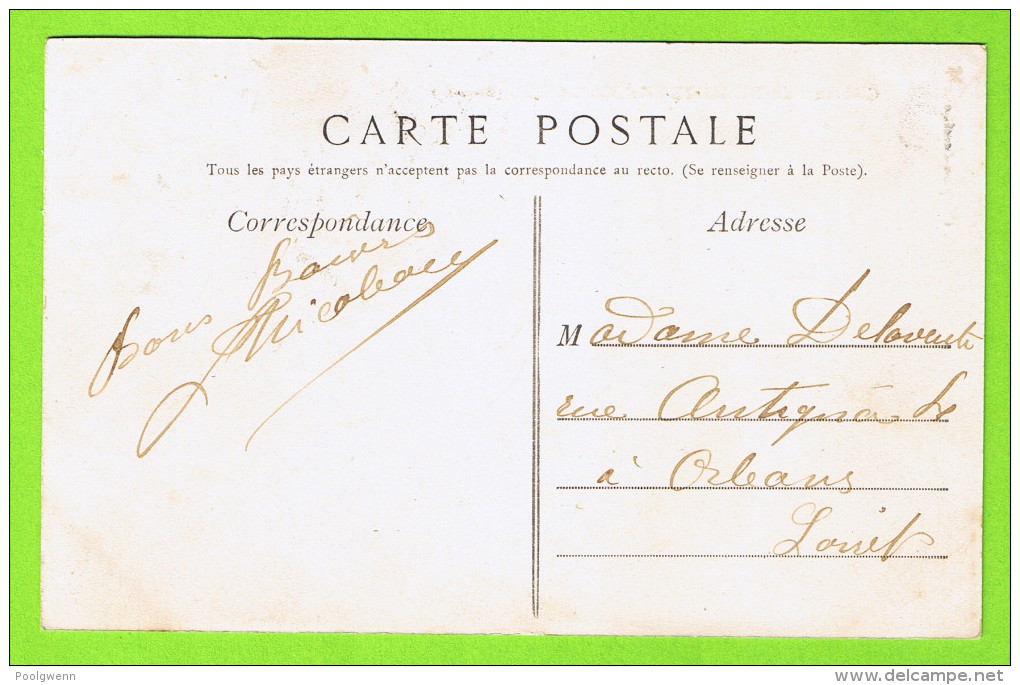 CARTE POSTALE
Tous les pays étrangers n'acceptent pas la correspondance au recto. (Se renseigner à la Poste).
Correspondance
Bons Baisers
Adresse
Madame
rue
à Orleans
Loiret
Poolgwenn
delcampe.net